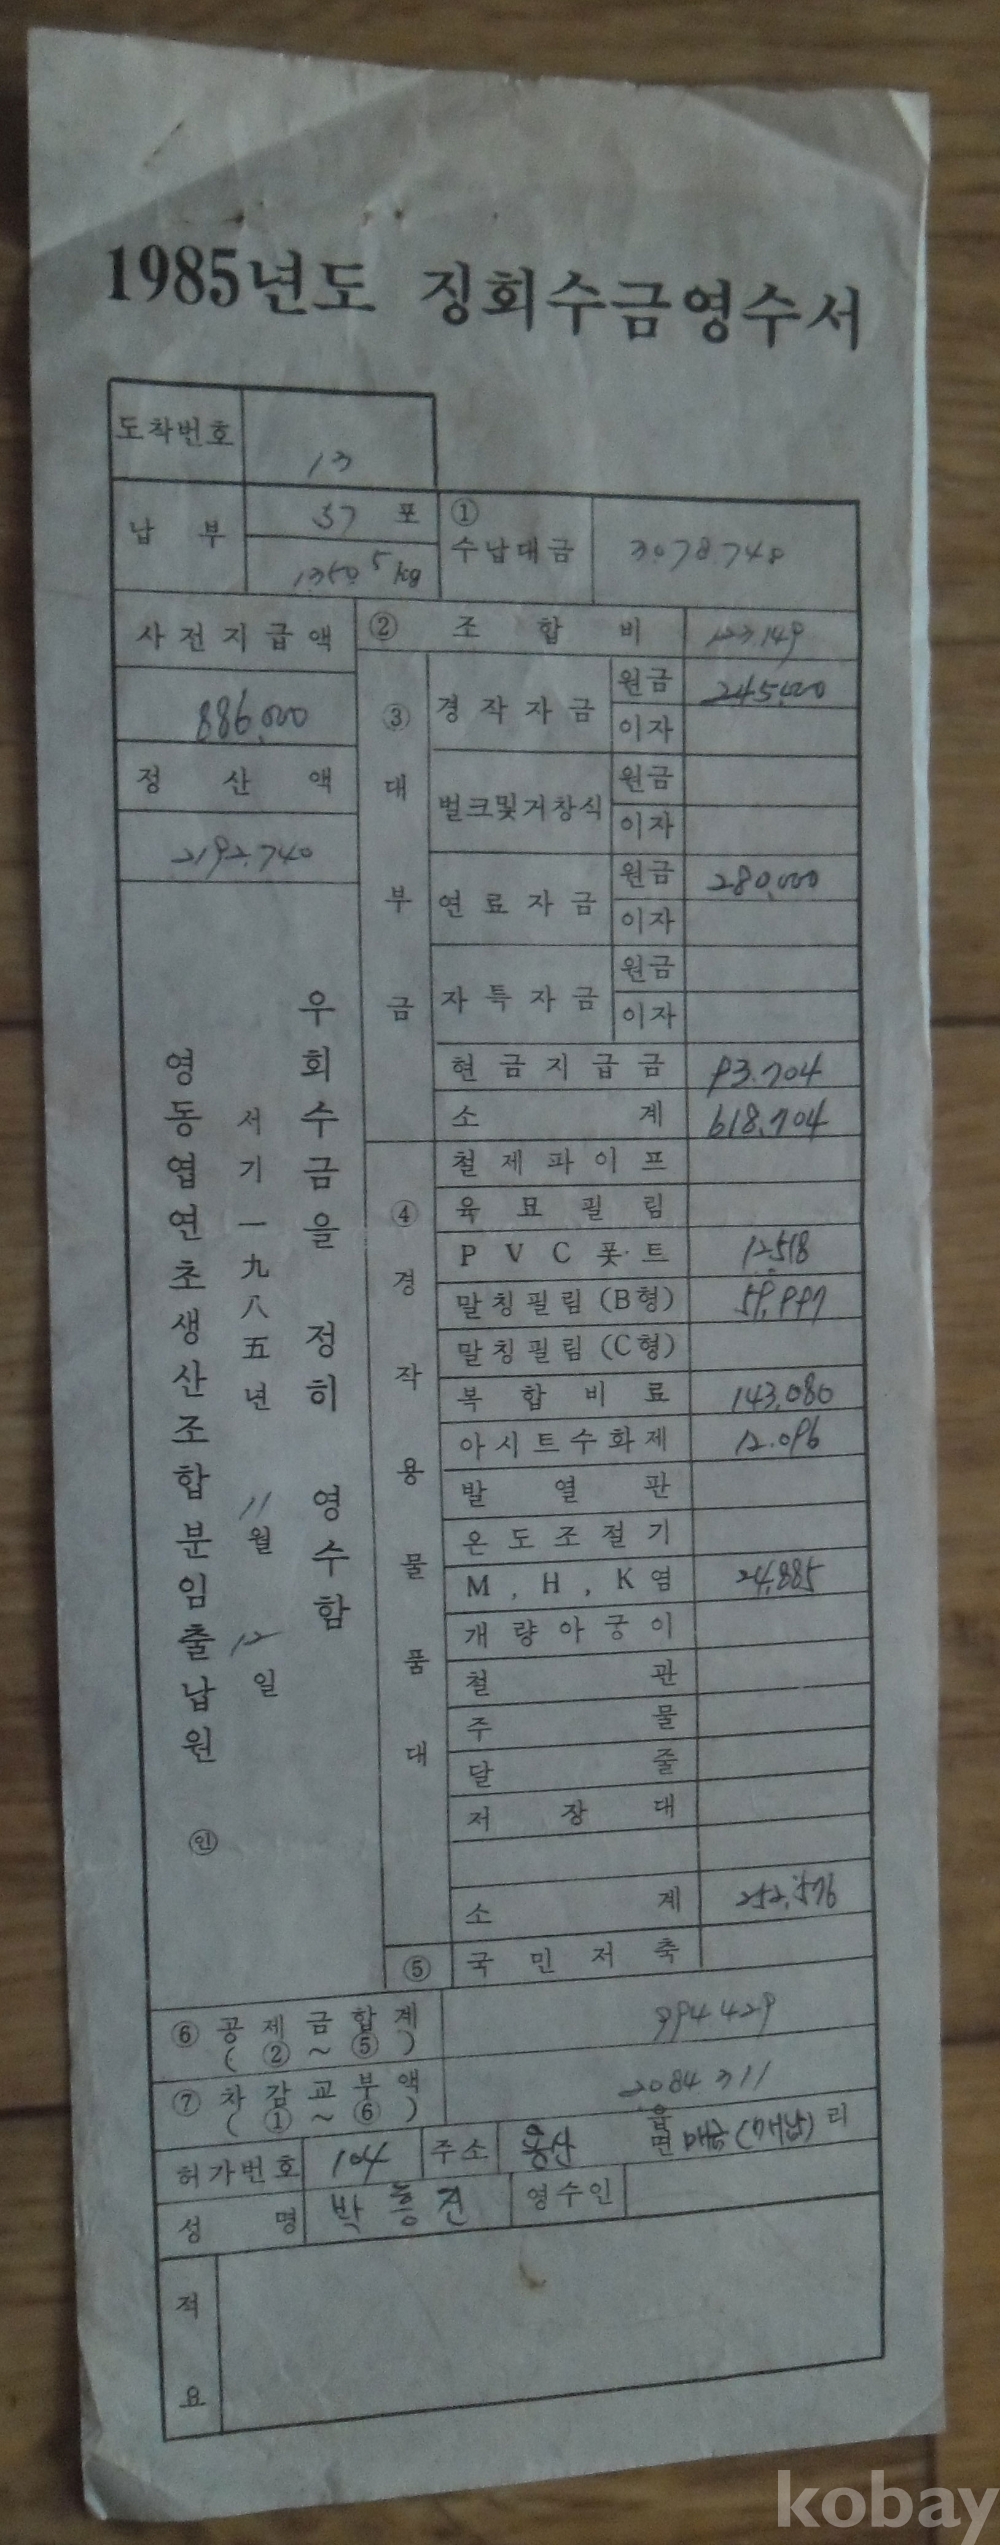 1985년도 징회수금영수서
도착번호 13
납부 37 포
1350.5 kg
① 수납대금 3.078.748
사전지급액
886,000
정산액
2,192,740
② 조합비 123,149
③ 대부금
경작자금 원금 245,000
이자
벌크및거창식 원금
이자
연료자금 원금 280,000
이자
자특자금 원금
이자
현금지급금 93.704
소계 618,704
④ 경작용물품대
철제파이프
육묘필림
PVC폿·트 12,518
말칭필림(B형) 59,997
말칭필림(C형)
복합비료 143,080
아시트수화제 12.096
발열판
온도조절기
M, H, K염 24,885
개량아궁이
철관
주물
달줄
저장대
소계 252,576
⑤ 국민저축
우회수금을 정히 영수함
서기一九八五년 11월 12일
영동엽연초생산조합분임출납원 ㊞
⑥ 공제금합계 (②~⑤) 994429
⑦ 차감교부액 (①~⑥) 2084311
허가번호 104 주소 용산 읍면 매금(매남) 리
성명 박흥진 영수인
적요
kobay